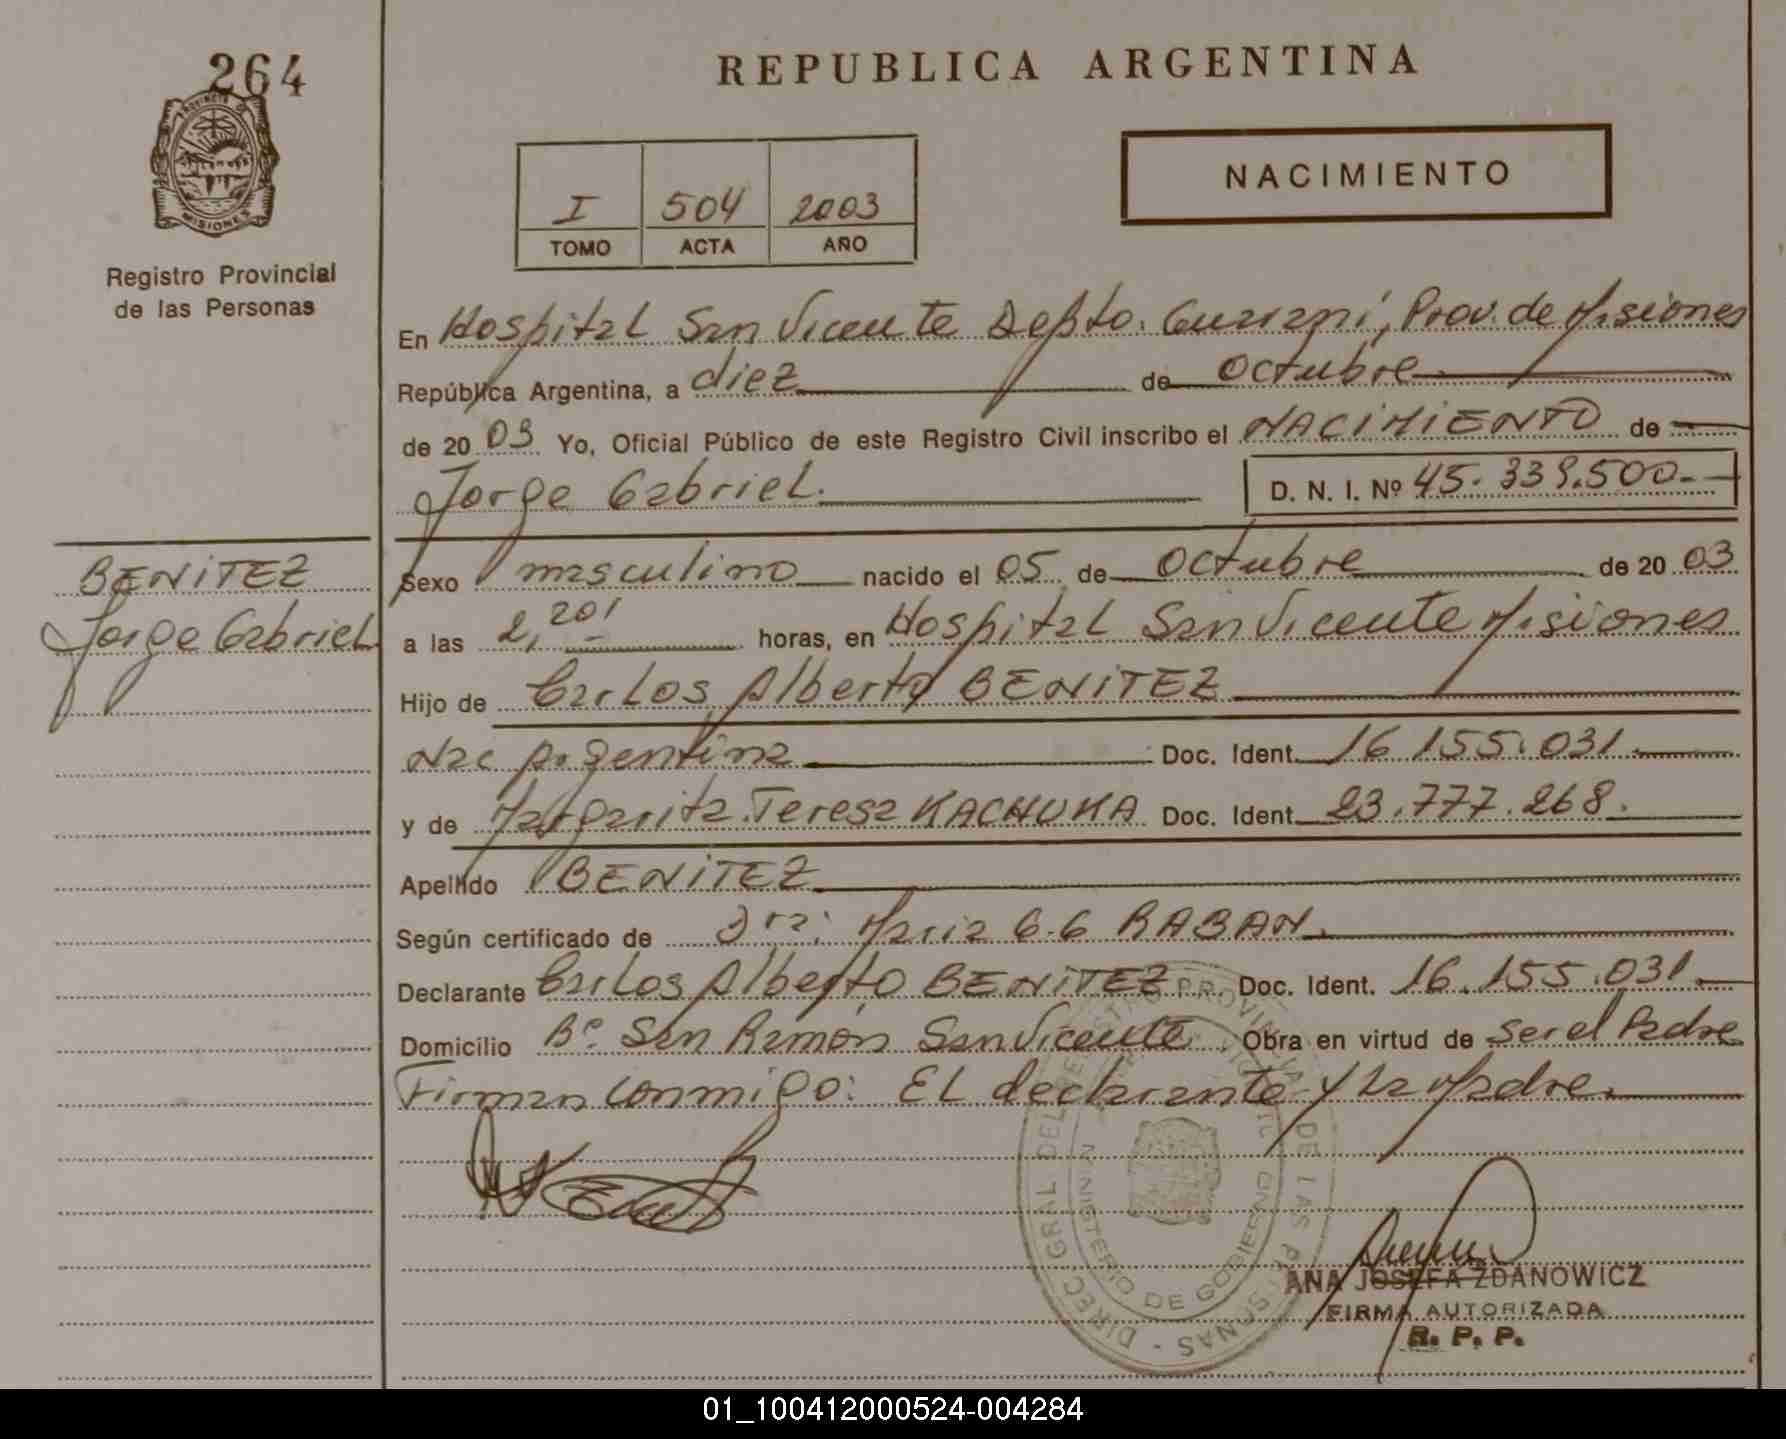 264
REPUBLICA ARGENTINA
PROVINCIA DE MISIONES
Registro Provincial
de las Personas
I 504 2003
TOMO ACTA AÑO
NACIMIENTO
En Hospital San Vicente Depto. Guarani, Prov. de Misiones
República Argentina, a diez de Octubre
de 2003 Yo, Oficial Público de este Registro Civil inscribo el NACIMIENTO de
Jorge Gabriel. D. N. I. Nº 45.339.500.-
BENITEZ
Jorge Gabriel
Sexo masculino nacido el 05 de Octubre de 2003
a las 2,20' horas, en Hospital San Vicente Misiones
Hijo de Carlos Alberto BENITEZ
Nac Argentina Doc. Ident. 16.155.031.
y de Margarita Teresa KACHUKA Doc. Ident. 23.777.268.
Apellido BENITEZ
Según certificado de Dra: Maria G. G RABAN.
Declarante Carlos Alberto BENITEZ Doc. Ident. 16.155.031.
Domicilio Bº San Ramón San Vicente Obra en virtud de ser el Padre
Firman conmigo: El declarante y la Madre.
DIREC. GRAL. DEL REGISTRO PROVINCIAL DE LAS PERSONAS -
MINISTERIO DE GOBIERNO
ANA JOSEFA ZDANOWICZ
FIRMA AUTORIZADA
R. P. P.
01_100412000524-004284